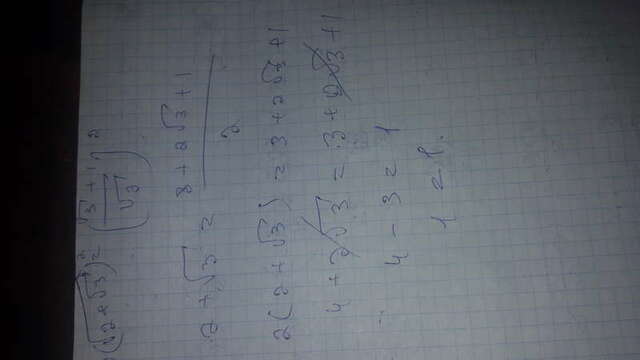 (√(2+√3))² = ((√3 + 1)/√2)²
2 + √3 = (3 + 2√3 + 1)/2
2(2 + √3) = 3 + 2√3 + 1
4 + 2√3 = 3 + 2√3 + 1
4 - 3 = 1
1 = 1.